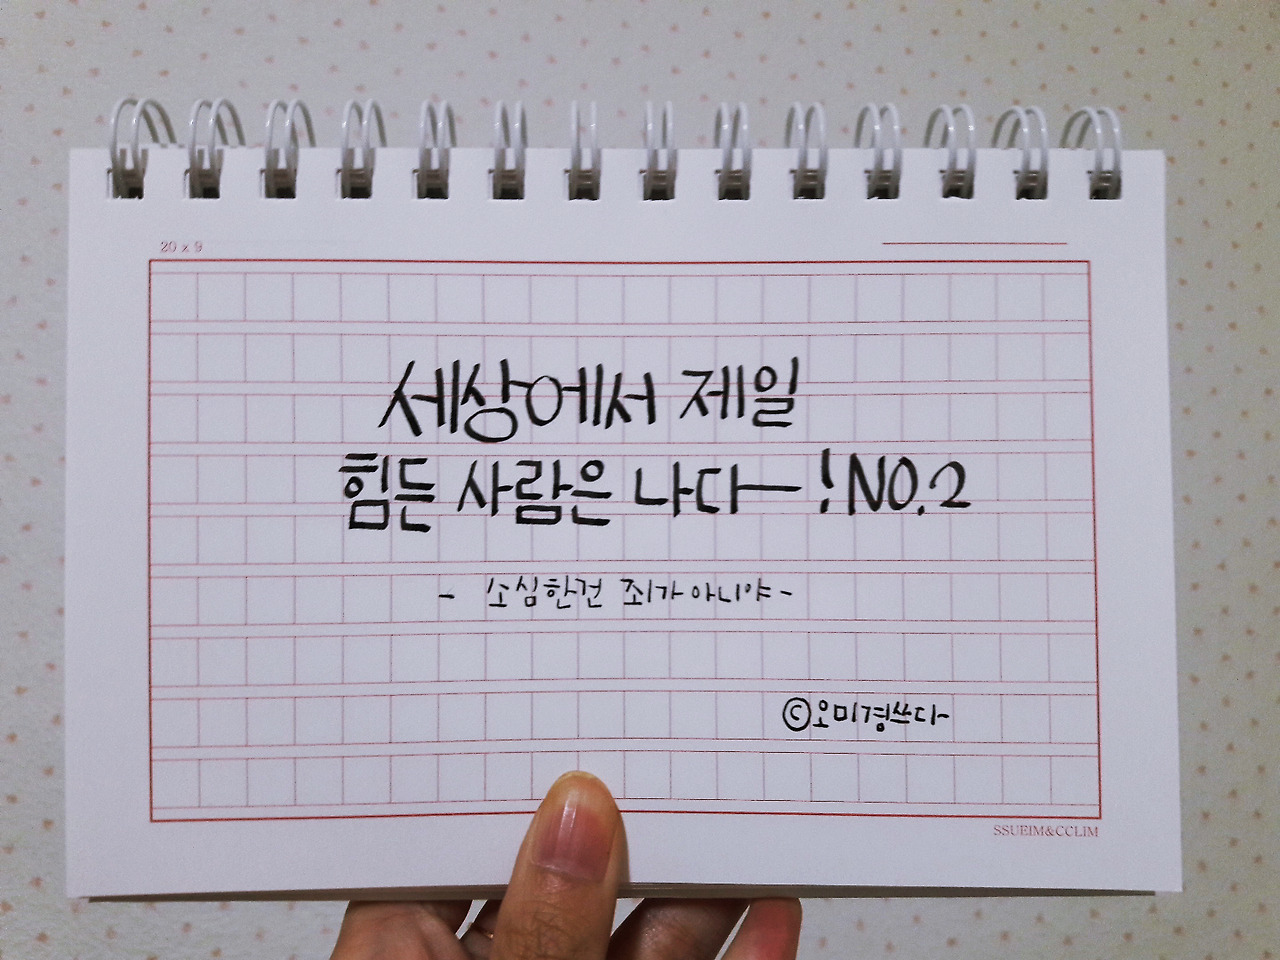 20 x 9
세상에서 제일
힘든 사람은 나다-! NO.2
- 소심한건 죄가아니야 -
©오미경쓰다
SSUEIM&CCLIM